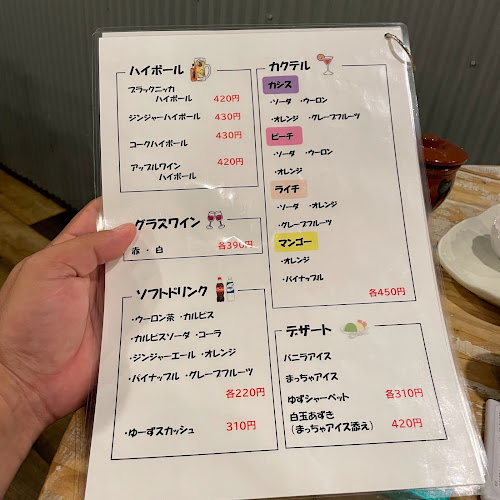 ハイボール
ブラックニッカ
ハイボール 420円
ジンジャーハイボール 430円
コークハイボール 430円
アップルワイン
ハイボール 420円
グラスワイン
赤・白 各390円
ソフトドリンク
・ウーロン茶 ・カルピス
・カルピスソーダ ・コーラ
・ジンジャーエール ・オレンジ
・パイナップル ・グレープフルーツ
各220円
・ゆーずスカッシュ 310円
カクテル
カシス
・ソーダ ・ウーロン
・オレンジ ・グレープフルーツ
ピーチ
・ソーダ ・ウーロン
・オレンジ
ライチ
・ソーダ ・オレンジ
・グレープフルーツ
マンゴー
・オレンジ
・パイナップル
各450円
デザート
バニラアイス
まっちゃアイス
ゆずシャーベット 各310円
白玉あずき
(まっちゃアイス添え) 420円